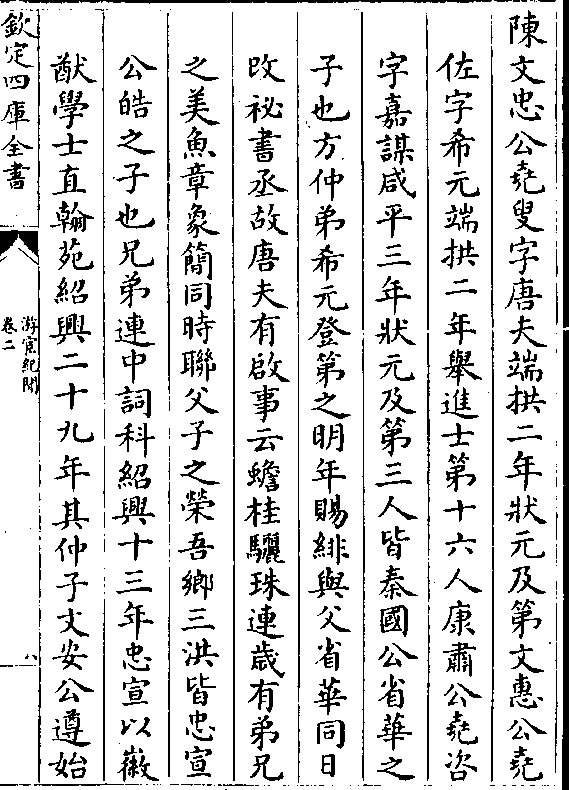 陳文忠公堯叟字唐夫端拱二年狀元及第文惠公堯
佐字希元端拱二年舉進士第十六人康肅公堯咨
字嘉謀咸平三年狀元及第三人皆秦國公省華之
子也方仲弟希元登第之明年賜緋與父省華同日
改祕書丞故唐夫有啟事云蟾桂驪珠連歲有弟兄
之美魚章象簡同時聯父子之榮吾鄉三洪皆忠宣
公皓之子也兄弟連中詞科紹興十三年忠宣以徽
猷學士直翰苑紹興二十九年其仲子文安公遵始
欽定四庫全書
游宦紀聞
卷二
八